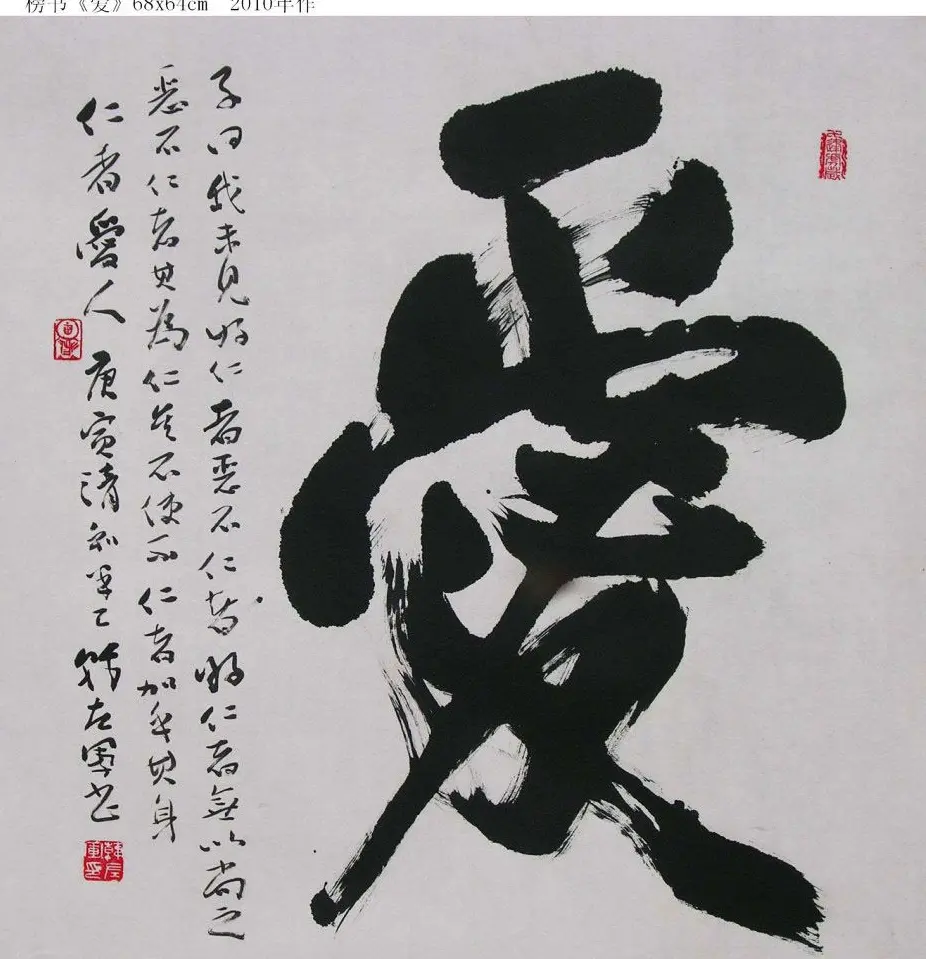 榜书《爱》68x64cm 2010年作
愛
子曰我未見好仁者惡不仁者好仁者無以尚之
惡不仁者其為仁矣不使不仁者加乎其身
仁者愛人 庚寅清和 韩左軍书
韓左軍印